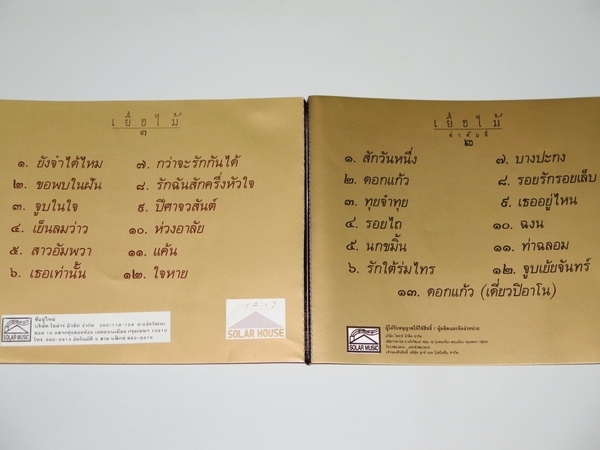 เยื่อไม้
๓
๑. ยังจำได้ไหม
๒. ขอพบในฝัน
๓. จูบในใจ
๔. เย็นลมว่าว
๕. สาวอัมพวา
๖. เธอเท่านั้น
๗. กว่าจะรักกันได้
๘. รักฉันสักครึ่งหัวใจ
๙. ปีศาจวสันต์
๑๐. ห่วงอาลัย
๑๑. แค้น
๑๒. ใจหาย
SOLAR MUSIC
ที่อยู่ใหม่
SOLAR HOUSE
เยื่อไม้
ลำดับที่
๒๑
๑. สักวันหนึ่ง
๒. ดอกแก้ว
๓. ทุยจำทุย
๔. รอยไถ
๕. นกขมิ้น
๖. รักใต้ร่มไทร
๗. บางปะกง
๘. รอยรักรอยเล็บ
๙. เธออยู่ไหน
๑๐. ฉงน
๑๑. ท่าฉลอม
๑๒. จูบเย้ยจันทร์
๑๓. ดอกแก้ว (เดี่ยวเปียโน)
SOLAR MUSIC